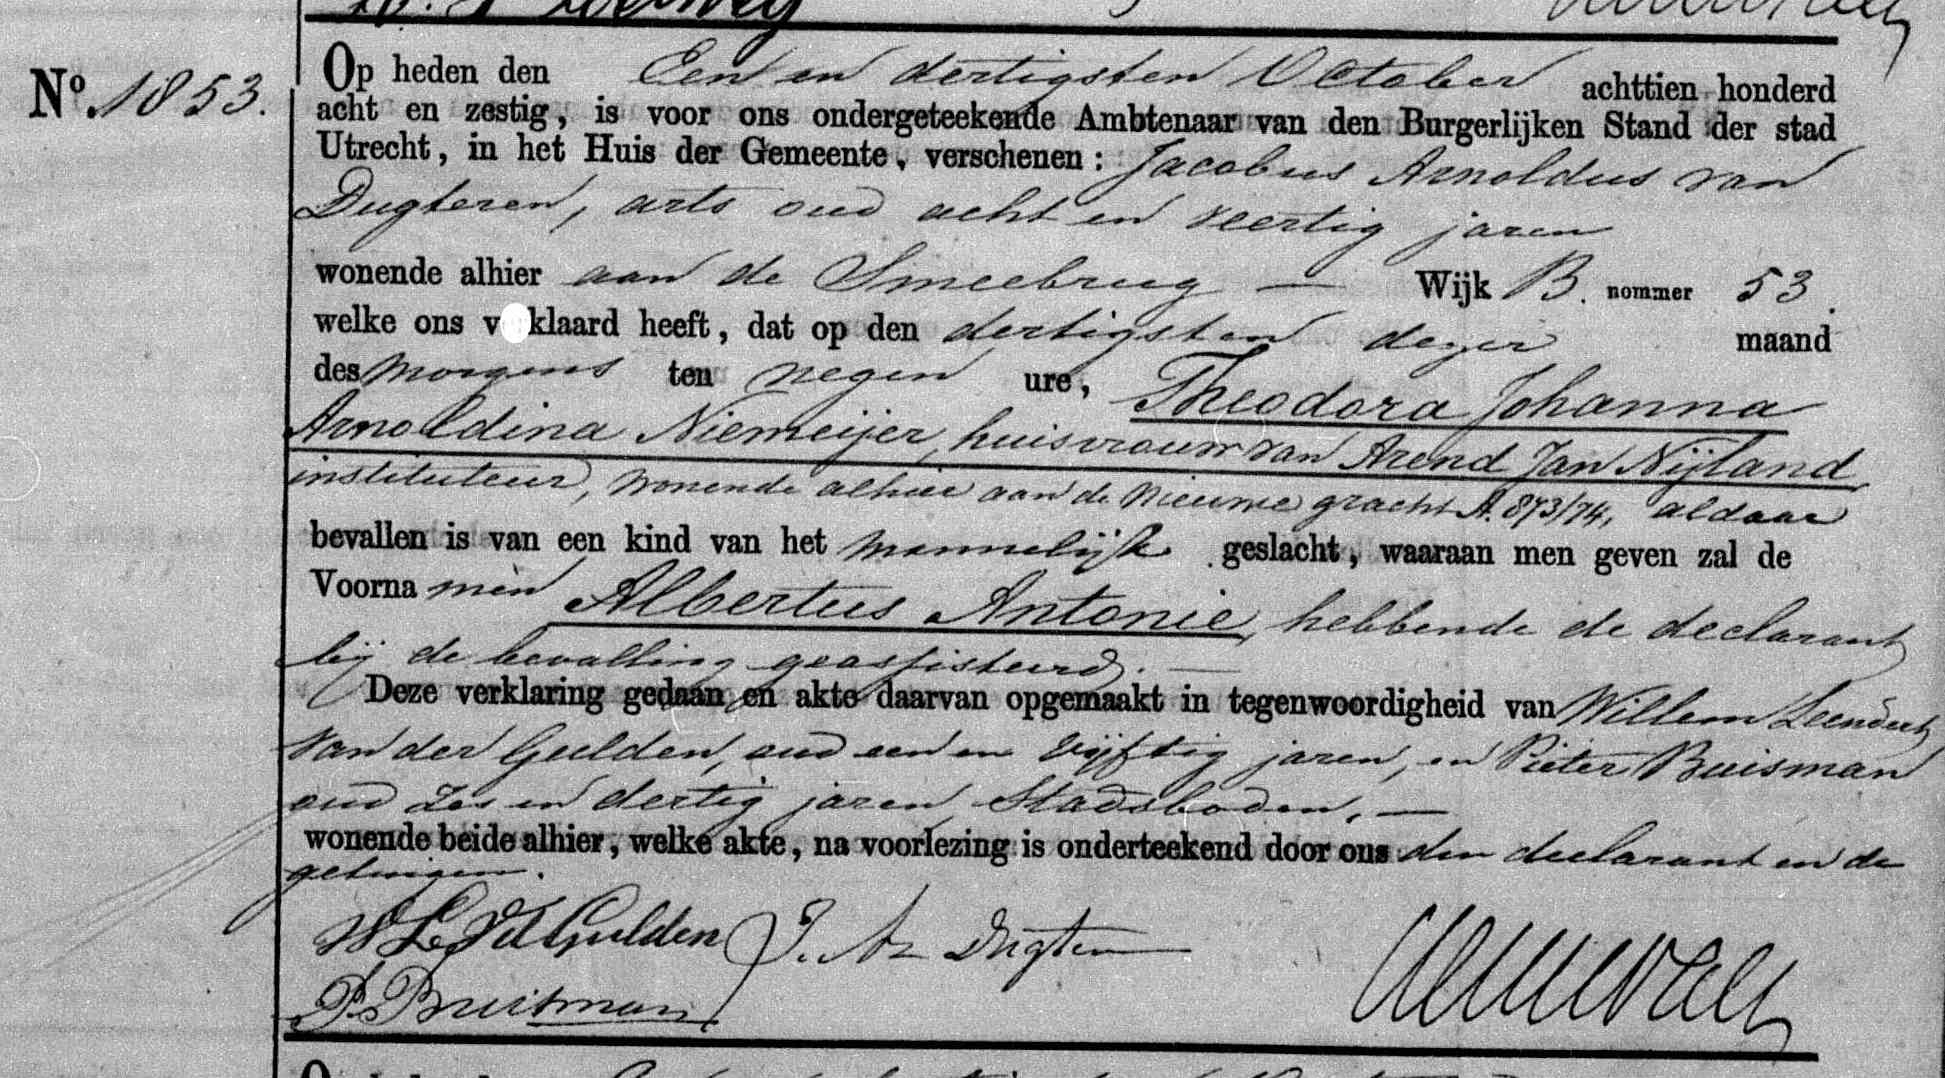 Nº. 1853.
Op heden den Een en dertigsten October achttien honderd
acht en zestig, is voor ons ondergeteekende Ambtenaar van den Burgerlijken Stand der stad
Utrecht, in het Huis der Gemeente, verschenen: Jacobus Arnoldus van
Dugteren, arts oud acht en veertig jaren
wonende alhier aan de Smeebrug — Wijk B. nommer 53.
welke ons v klaard heeft, dat op den dertigsten dezer maand
des morgens ten negen ure, Theodora Johanna
Arnoldina Niemeijer, huisvrouw van Arend Jan Nijland
instituteur, wonende alhier aan de Nieuwe gracht A. 873/74, aldaar
bevallen is van een kind van het mannelijk geslacht, waaraan men geven zal de
Voorna men Albertus Antonie, hebbende de declarant
bij de bevalling geassisteerd. —
Deze verklaring gedaan en akte daarvan opgemaakt in tegenwoordigheid van Willem Leendert
van der Gulden, oud een en vijftig jaren, en Pieter Buisman
oud zes en dertig jaren, Stadsboden, —
wonende beide alhier, welke akte, na voorlezing is onderteekend door ons den declarant en de
getuigen.
W L v d Gulden J. A. v Dugteren
P. Buisman